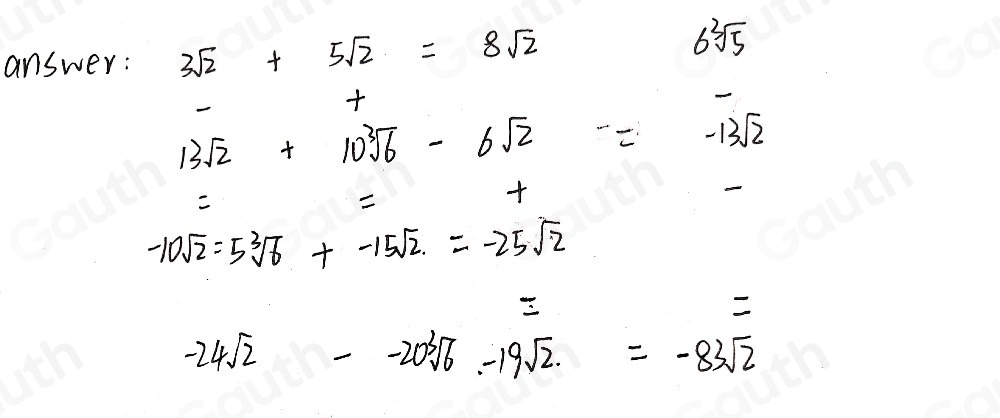 answer: 3√2 + 5√2 = 8√2 6∛5
- + -
13√2 + 10∛6 - 6√2 = -13√2
= = + -
-10√2 = 5∛6 + -15√2. = -25√2
= =
-24√2 - -20∛6 .-19√2. = -83√2